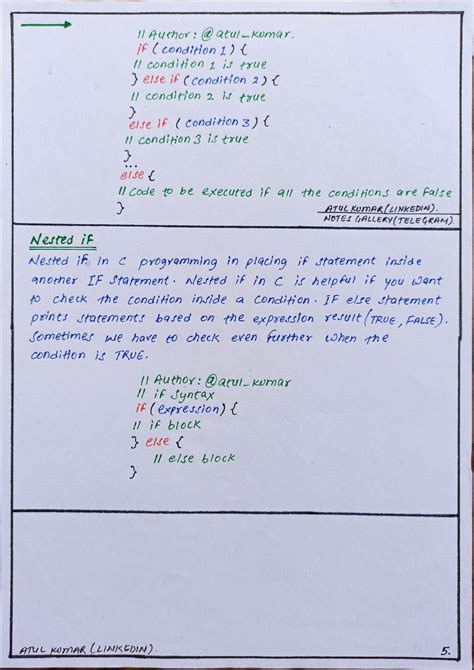 // Author: @atul_kumar.
if (condition 1) {
// condition 1 is true
} else if (condition 2) {
// condition 2 is true
}
else if (condition 3) {
// condition 3 is true
}
...
else {
// Code to be executed if all the conditions are false
}
ATUL KUMAR (LINKEDIN).
NOTES GALLERY (TELEGRAM)
Nested if
Nested if in C programming in placing if statement inside
another IF Statement. Nested if in C is helpful if you want
to check the condition inside a Condition. IF else statement
prints statements based on the expression result (TRUE, FALSE).
Sometimes we have to check even further when the
condition is TRUE.
// Author: @atul_kumar
// if Syntax
if (expression) {
// if block
} else {
// else block
}
ATUL KUMAR (LINKEDIN).
5.